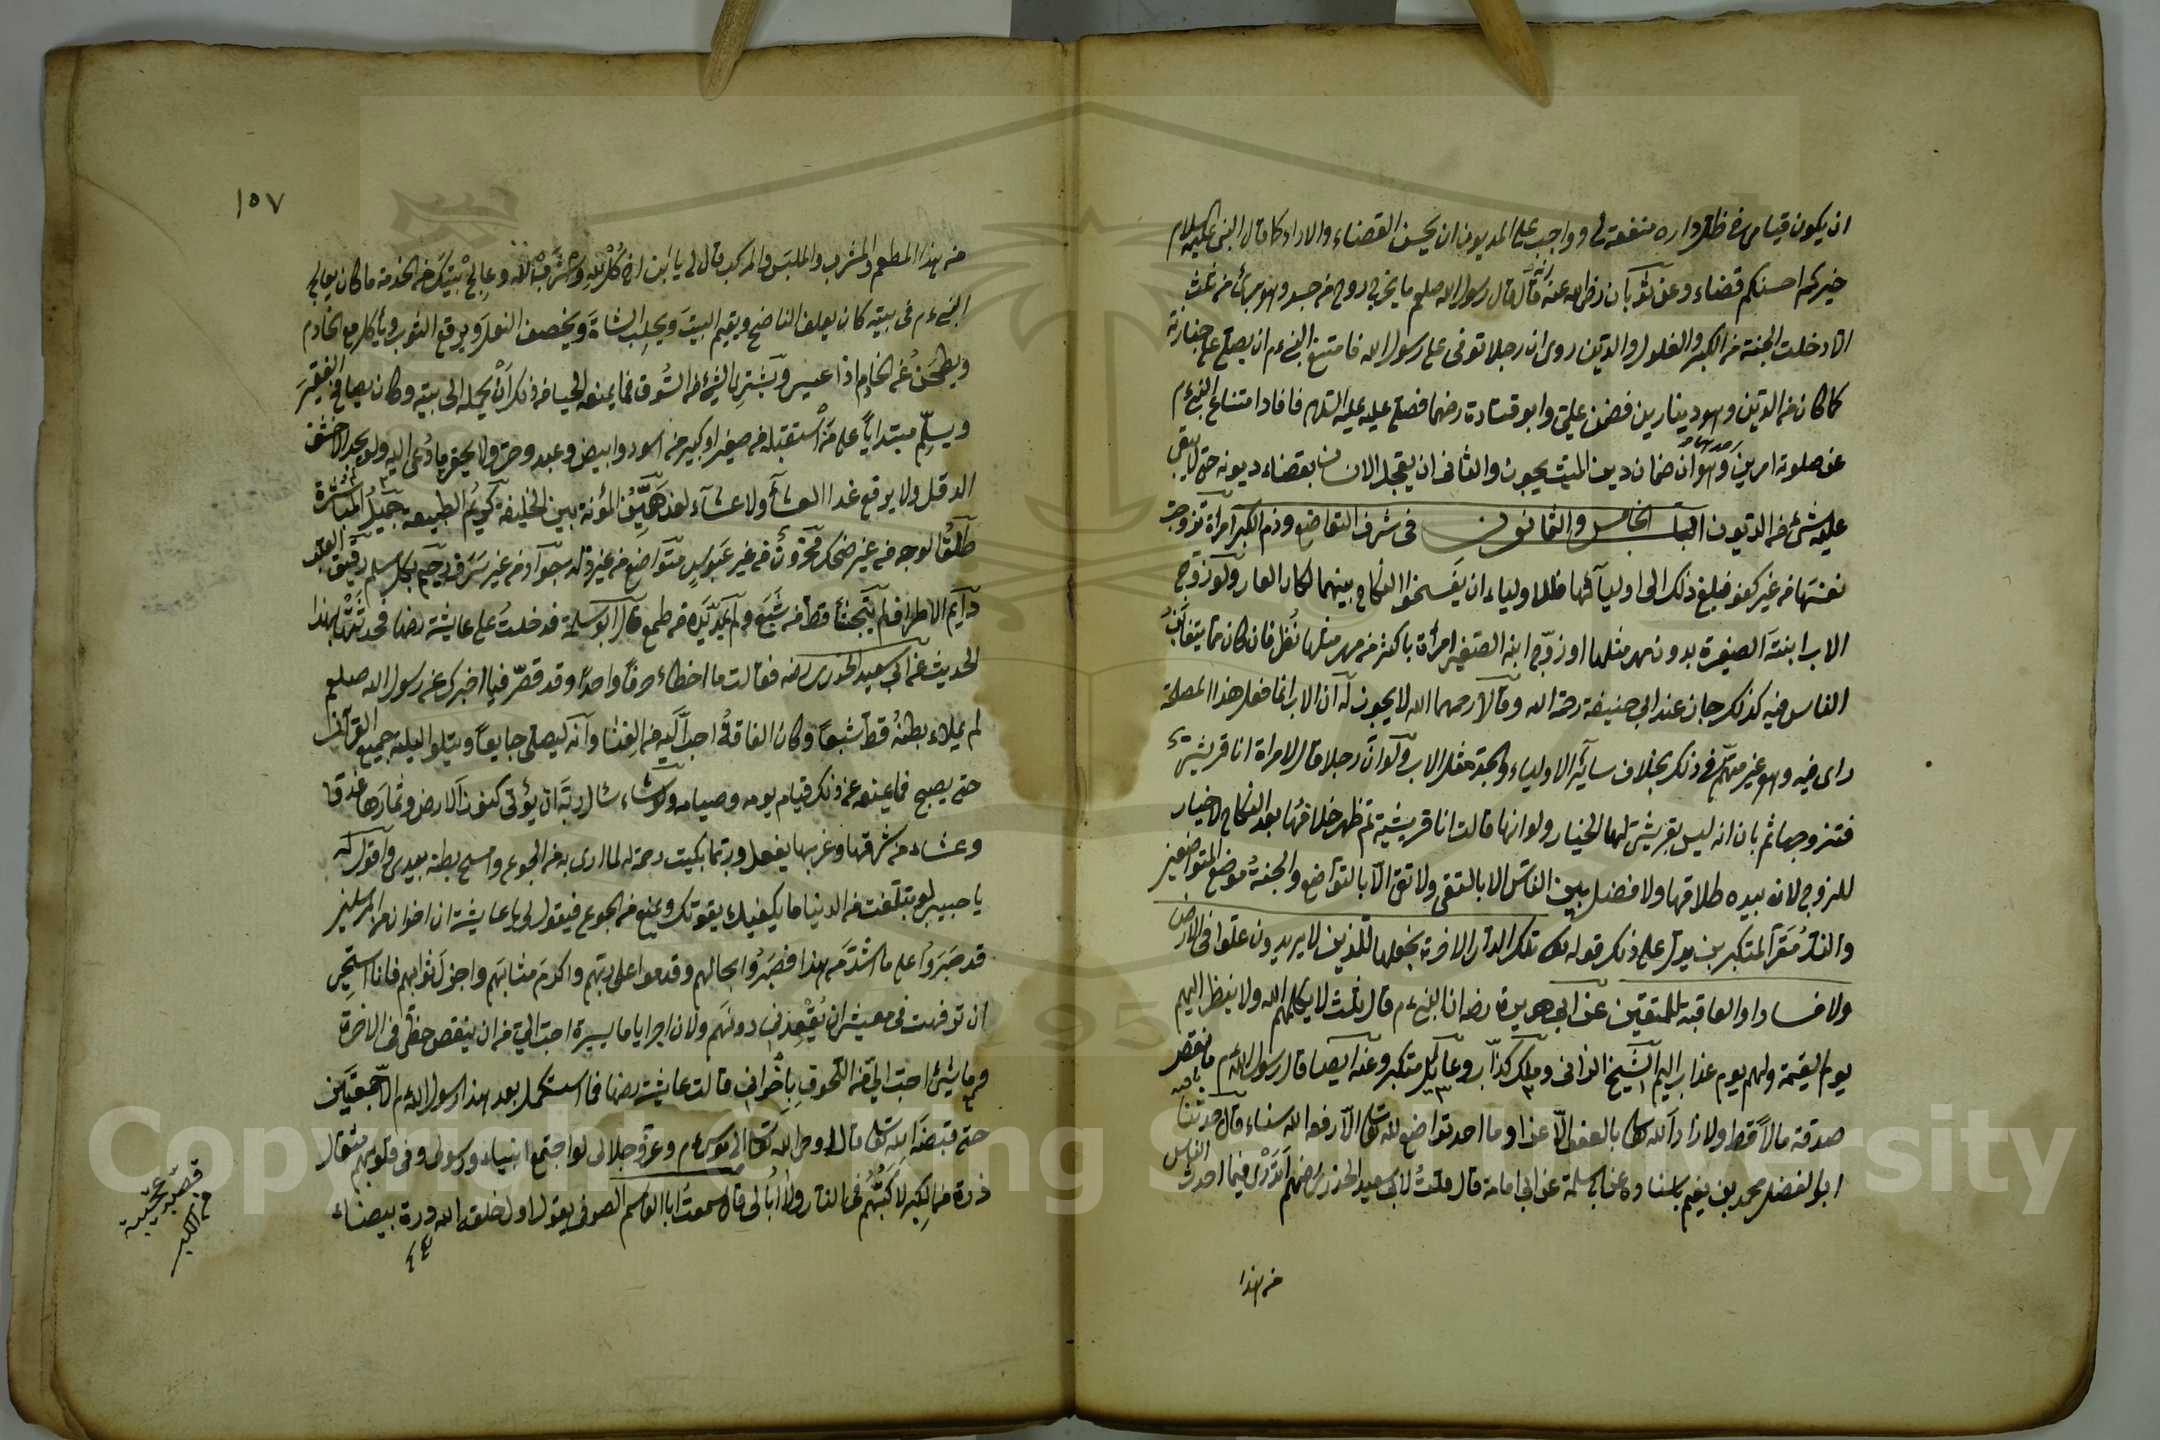 ان يكون قيامى فى ظل داره منفعة لى وواجب على المديون ان يحسن القضاء والاداء كما قال النبى عليه السلام
خيركم احسنكم قضاء وعن ثوبان رضى الله عنه انه قال قال رسول الله صلعم ما يخرج روح من جسد وهو برئ من ثلث
الا دخلت الجنة من الكبر والغلول والدين روى ان رجلا توفى على رسول الله فامتنع النبى ءم ان يصلى على جنازته
لما كان من الدين وهو دينارين فضمن على وابو قتادة رضهما فصلى عليه عليه السلام فافاد امتناع النبى ءم
عن صلوته امرين احدهما وهو ان ضمان دين الميت يجوز والثانى ان يعجل الانسان بقضاء ديونه حتى لا يبقى
عليه شئ من الديون الباب الخامس والثمانون فى شرف التواضع وذم الكبر امراة تزوجت
نفسها من غير كفو فبلغ ذلك الى اوليائها فللاولياء ان يفسخوا النكاح بينهما لمكان العار ولو زوج
الاب ابنته الصغيرة بدون مهر مثلها او زوج ابنه الصغير امرأة باكثر من مهر مثلها نظر فان كان مما يتغابن
الناس فيه كذلك جاز عند ابى حنيفة رحمة الله وقالا رحمهما الله لا يجوز له ان الاب انما فعل هذا لمصلحة
راى فيه وهو غير متهم فى ذلك بخلاف سائر الاولياء والجد مثل الاب ولو ان رجلا قال لامراة انا قريشى
فتزوجها ثم بان انه ليس بقريشى لها الخيار ولو انها قالت انا قريشية ثم ظهر خلافها بعد النكاح لا خيار
للزوج لانه بيده طلاقها ولا فضل بين الناس الا بالتقى ولا تقى الا بالتواضع والجنة موضع المتواضعين
والنار مقر المتكبرين يدل على ذلك قوله تعالى تلك الدار الاخرة نجعلها للذين لا يريدون علوا فى الارض
ولا فسادا والعاقبة للمتقين عن ابى هريرة رضه ان النبى ءم قال ثلث لا يكلمهم الله ولا ينظر اليهم
يوم القيمة ولهم يوم عذاب اليم الشيخ الزانى وملك كذاب وعائل متكبر وعنه ايضا قال رسول الله ءم ما نقص
صدقة مالا قط ولا زاد الله تعالى بالعفو الا عزا وما احد تواضع لله تعالى الا رفعه الله سناء قال حدثنا
ابو الفضل محمد بن نعيم باسناده عن ابى سلمة عن ابى امامة قال قلت لابى سعيد الخدرى رضهم اترى فيما احدث الناس
من هذا
١٥٧
من هذا المطعم والمشرب والملبس والمركب قال لى يا ابن اخى كل لله واشرب لله وعالج بيتك من الخدمة ما كان يعالج
النبى ءم فى بيته كان يعلف الناضح ويقيم البيت ويحلب الشاة ويخصف النعل ويرقع الثوب ويأكل مع الخادم
ويطحن عن الخادم اذا عيى ويشترى الشئ من السوق فما يمنعه الحياء من ذلك ان يحمله الى بيته وكان يصافح الفقير
ويسلم مبتديا على من استقبله من صغير او كبير من اسود وابيض وعبد وحر ولا يحقر ما دعى اليه ولو بحد الاحشف
الدقل ولا يرفع غدا العشاء ولا عشاء لغد هين المؤنة بين الخليفة كريم الطبيعة جميل المعاشرة
طلق الوجه من غير ضحك محزون من غير عبوس متواضع من غير ذلة جواد من غير سرف رحيم بكل مسلم رقيق القلب
دايم الاطراف لم يتجشأ قط من شبع ولم يمد يده من طمع قال ابو سلمة فدخلت على عايشة رضها فحدثتها بهذا
الحديث عن ابى سعيد الخدرى رضه فقالت ما اخطأ حرفا واحدا وقد قصر فيما اخبرك عن رسول الله صلعم
لم يملاء بطنه قط شبعا وكان الفاقة احب اليه من الغنا وانه ليصلى جايعا ويتلو اليلة جميع القرآن
حتى يصبح فما يمنعه عن ذلك قيام يومه وصيامه ولو شاء سال ربه ان يؤتى كنوز الارض وثمارها غدقا
وعشاء من شرقها وغربها يفعل وربما بكيت رحمة له لما ارى به من الجوع وامسح بطنه بيدى واقول له
يا حبيبى لو تبلغت من الدنيا ما يكفيك بقوتك ويمنع من الجوع فيقول لى يا عايشة ان اخوان من المرسلين
قد صبروا على ما اشد من هذا فصبروا بحالهم وقدموا على ربهم واكرم مثابهم واجزل ثوابهم فانا استحى
ان ترفهت فى معيشتى ان يقصر بى دونهم ولان اجرا ياما يسيرة احب الى من ان ينقص حظى فى الاخرة
وما شئ احب الى من اللحوق باخوانى قالت عايشة رضها فما استكمل بعد هذا رسول الله ءم الا جمعتين
حتى قبضه الله تعالى قال اوحى الله تعالى الى موسى ءم وعزتى وجلالى لو اجتمع انبياء ورسولى وفى قلوبهم مثقال
ذرة من الكبر لاكبنهم فى النار ولا ابالى قال سمعت ابا القاسم الصوفى يقول اول خلقه الله درة بيضاء
قصير عجيبة
من الكبر